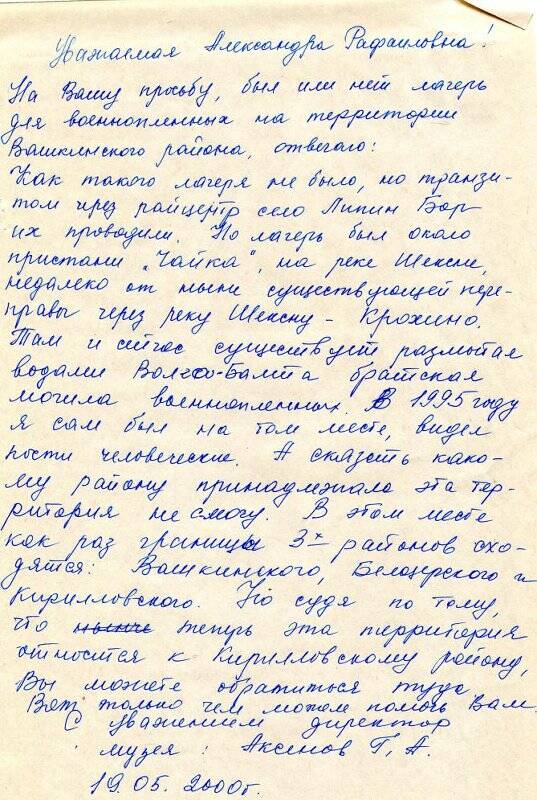 Уважаемая Александра Рафаиловна!
На Вашу просьбу, был или нет лагерь
для военнопленных на территории
Вашкинского района, отвечаю:
Как такого лагеря не было, но транзи-
том через райцентр село Липин Бор
их проводили. Но лагерь был около
пристани "Чайка", на реке Шексне,
недалеко от ныне существующей пере-
правы через реку Шексну - Крохино.
Там и сейчас существует размытая
водами Волго-Балта братская
могила военнопленных. В 1995 году
я сам был на том месте, видел
кости человеческие. А сказать како-
му району принадлежала эта тер-
ритория не смогу. В этом месте
как раз границы 3х районов схо-
дятся: Вашкинского, Белозерского и
Кирилловского. Но судя по тому,
что ныне теперь эта территория
относится к Кирилловскому району,
Вы можете обратиться туда
Вот только чем можем помочь Вам.
С уважением директор
музея: Аксенов Г. А.
19.05. 2000г.